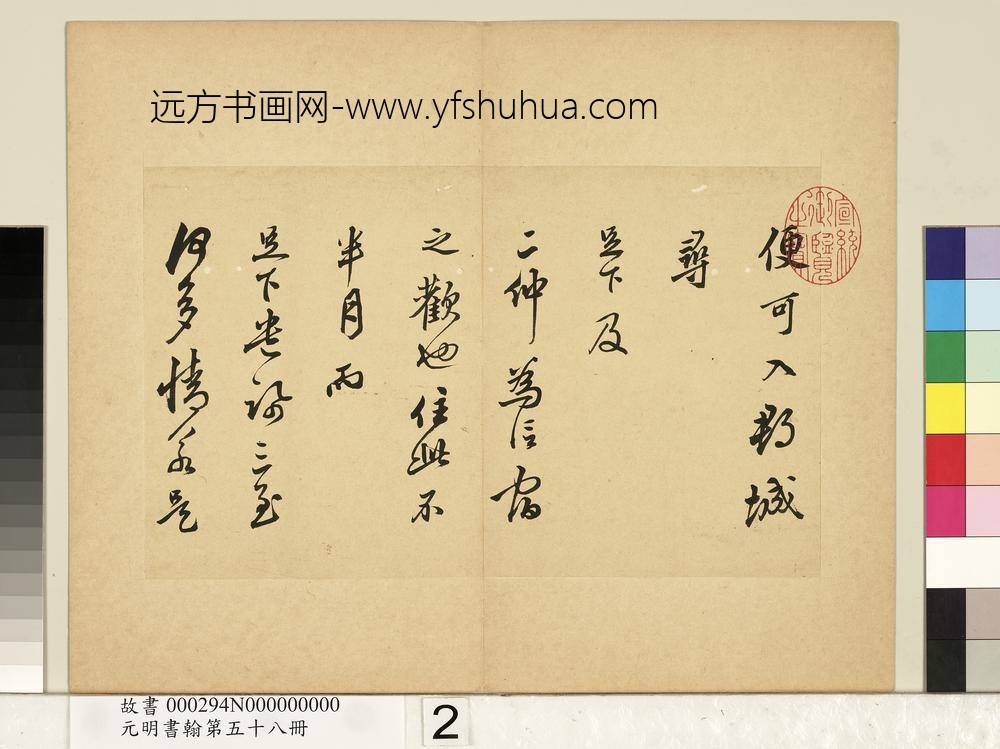 远方书画网-www.yfshuhua.com
宣統御覽之寶
便可入郡城
尋
足下及
二仲為信宿
之歡也住此不
半月而
足下書問三至
何多情若是
故書 000294N000000000
元明書翰第五十八冊
2